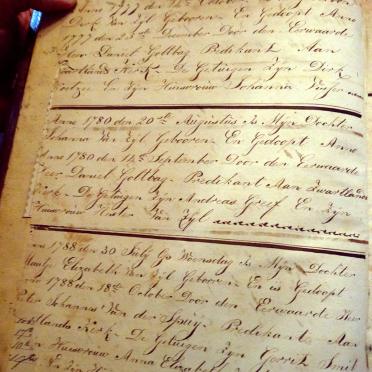 Anno 1777 den 12de October
Dirk Van Zyl Geboren En Gedoopt Anno
1777 den 23ste December Door den Eerwaarde
Heer Daniel Goltbag Predikant Aan
Zwartlands Kerk De Getuigen Zyn Dirk
Coetzee En Zyn Huisvrouw Johanna
Anno 1780 den 20ste Augustus Is Myn Dochter
Johanna Van Zyl Geboren En Gedoopt Anno
Anno 1780 den September Door den Eerwaarde
Heer Daniel Goltbag Predikant Aan Zwartlands
Kerk De Getuigen Zyn Andreas Greef En Zyn
Huisvrouw Hester Van Zyl
Anno 1788 den 30 July Op Woensdag Is Myn Dochter
Elizabeth Van Zyl Geboren En is Gedoopt
Anno 1788 den 18de October Door den Eerwaarde Heer
Peter Johannes Van der Spuy Predikante Aan
Zwartlands Kerk De Getuigen Zyn Gerrit Smit
En Zyn Huisvrouw Anna Elizabeth